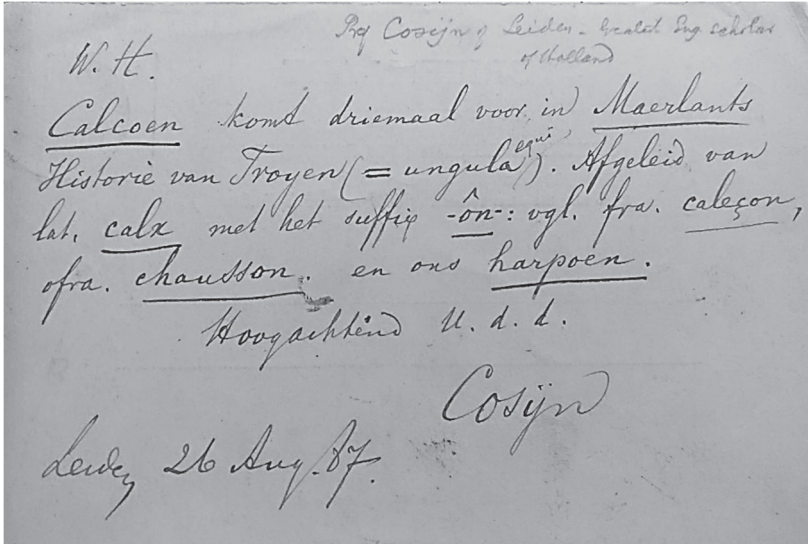 Prof Cosijn of Leiden - Greatest Eng. scholar
of Holland
W. H.
Calcoen komt driemaal voor in Maerlants
Historie van Troyen (= ungula equi). Afgeleid van
lat. calx met het suffix -ôn-: vgl. fra. caleçon,
ofra. chausson. en ons harpoen.
Hoogachtend U. d. d.
Cosijn
Leiden 26 Aug. 87.